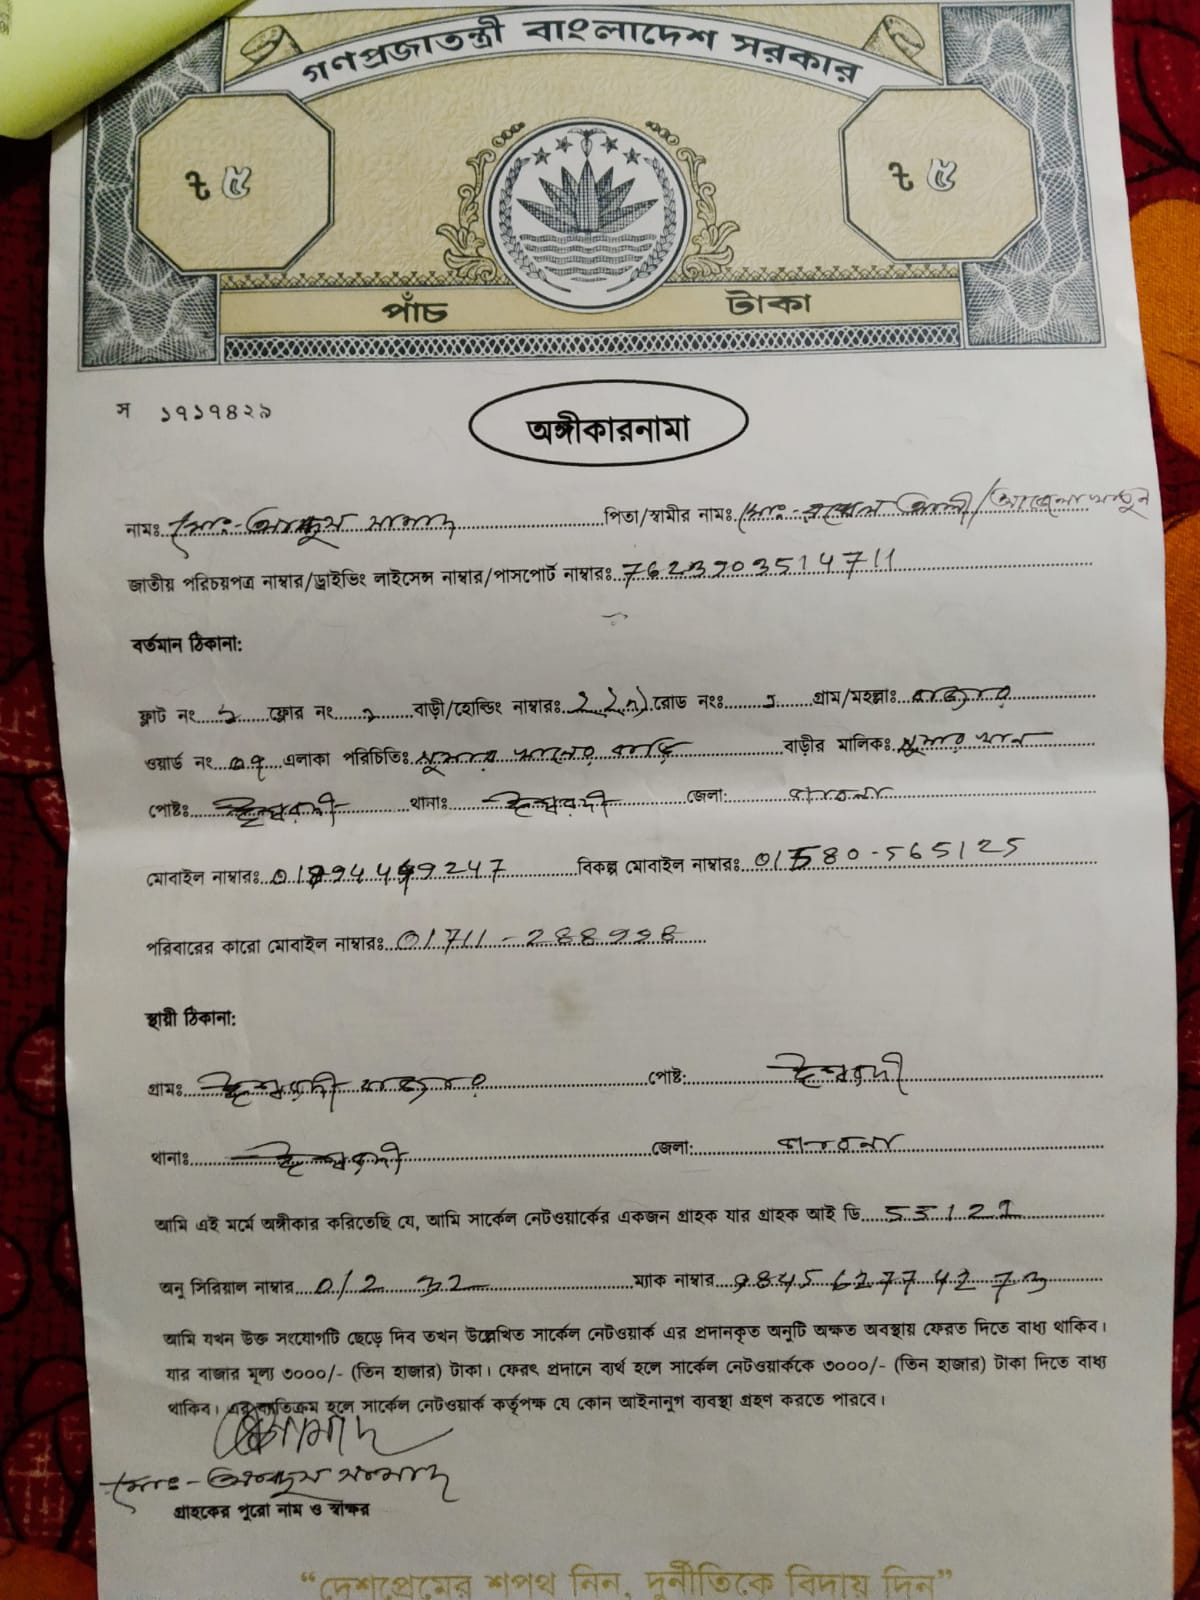 গণপ্রজাতন্ত্রী বাংলাদেশ সরকার
৳ ৫ ৳ ৫
পাঁচ টাকা
স ১৭১৭৪২৯
অঙ্গীকারনামা
নামঃ মোঃ- আব্দুস সামাদ পিতা/স্বামীর নামঃ মোঃ- আলী/ খাতুন
জাতীয় পরিচয়পত্র নাম্বার/ড্রাইভিং লাইসেন্স নাম্বার/পাসপোর্ট নাম্বারঃ
বর্তমান ঠিকানা:
ফ্লাট নং ফ্লোর নং বাড়ী/হোল্ডিং নাম্বারঃ রোড নংঃ গ্রাম/মহল্লাঃ বাজার
ওয়ার্ড নং এলাকা পরিচিতিঃ বাড়ীর মালিকঃ
পোষ্টঃ ঈশ্বরদী থানাঃ ঈশ্বরদী জেলা: পাবনা
মোবাইল নাম্বারঃ বিকল্প মোবাইল নাম্বারঃ 01580-565125
পরিবারের কারো মোবাইল নাম্বারঃ 01711-288998
স্থায়ী ঠিকানা:
গ্রামঃ ঈশ্বরদী বাজার পোষ্ট: ঈশ্বরদী
থানাঃ ঈশ্বরদী জেলা: পাবনা
আমি এই মর্মে অঙ্গীকার করিতেছি যে, আমি সার্কেল নেটওয়ার্কের একজন গ্রাহক যার গ্রাহক আই ডি
অনু সিরিয়াল নাম্বার ম্যাক নাম্বার
আমি যখন উক্ত সংযোগটি ছেড়ে দিব তখন উল্লেখিত সার্কেল নেটওয়ার্ক এর প্রদানকৃত অনুটি অক্ষত অবস্থায় ফেরত দিতে বাধ্য থাকিব।
যার বাজার মূল্য ৩০০০/- (তিন হাজার) টাকা। ফেরৎ প্রদানে ব্যর্থ হলে সার্কেল নেটওয়ার্ককে ৩০০০/- (তিন হাজার) টাকা দিতে বাধ্য
থাকিব। এর ব্যতিক্রম হলে সার্কেল নেটওয়ার্ক কর্তৃপক্ষ যে কোন আইনানুগ ব্যবস্থা গ্রহণ করতে পারবে।
মোঃ- আব্দুস সামাদ
গ্রাহকের পুরো নাম ও স্বাক্ষর
“দেশপ্রেমের শপথ নিন, দুর্নীতিকে বিদায় দিন”